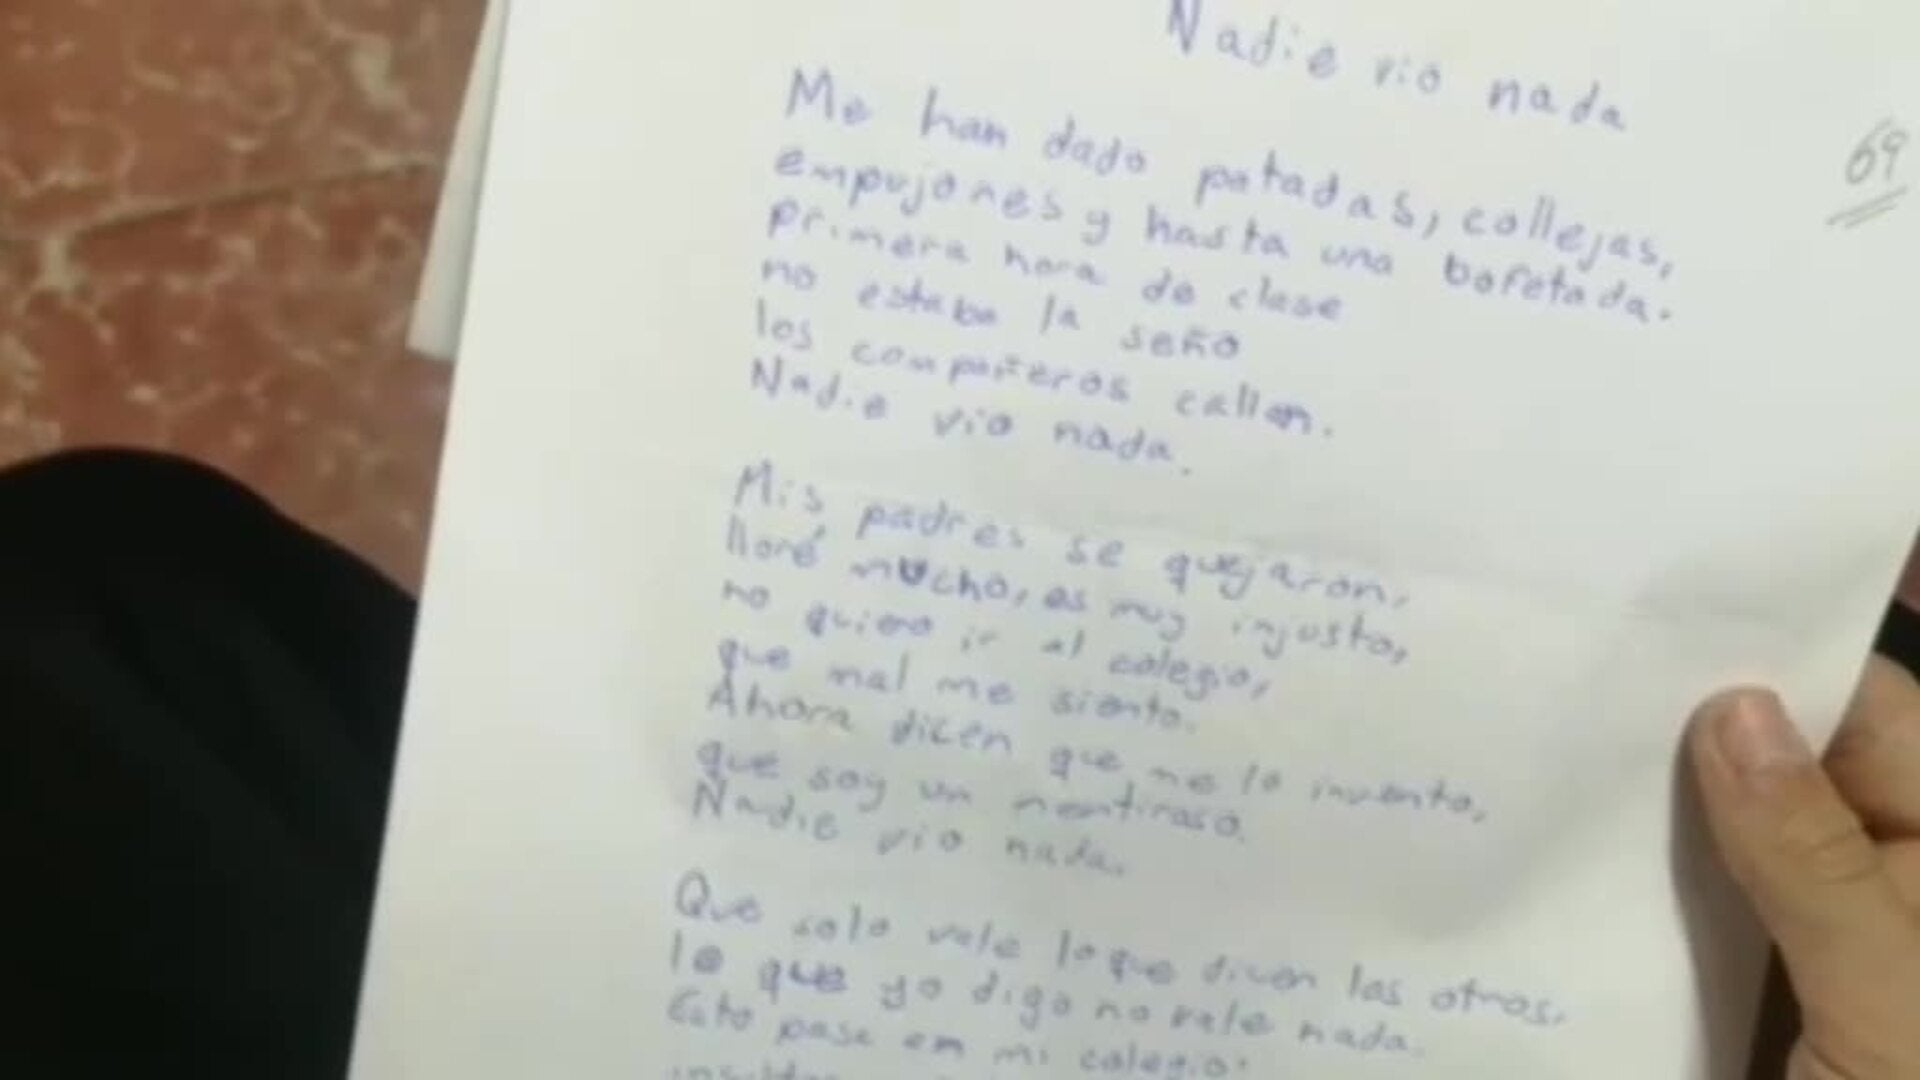 Nadie vio nada
69
Me han dado patadas, collejas,
empujones y hasta una bofetada.
primera hora de clase
no estaba la seño
los compañeros callan.
Nadie vio nada.
Mis padres se quejaron,
lloré mucho, es muy injusto,
no quiero ir al colegio,
que mal me siento.
Ahora dicen que me lo invento,
que soy un mentiroso.
Nadie vio nada.
Que solo vale lo que dicen los otros,
lo que yo digo no vale nada.
Esto pasa en mi colegio: